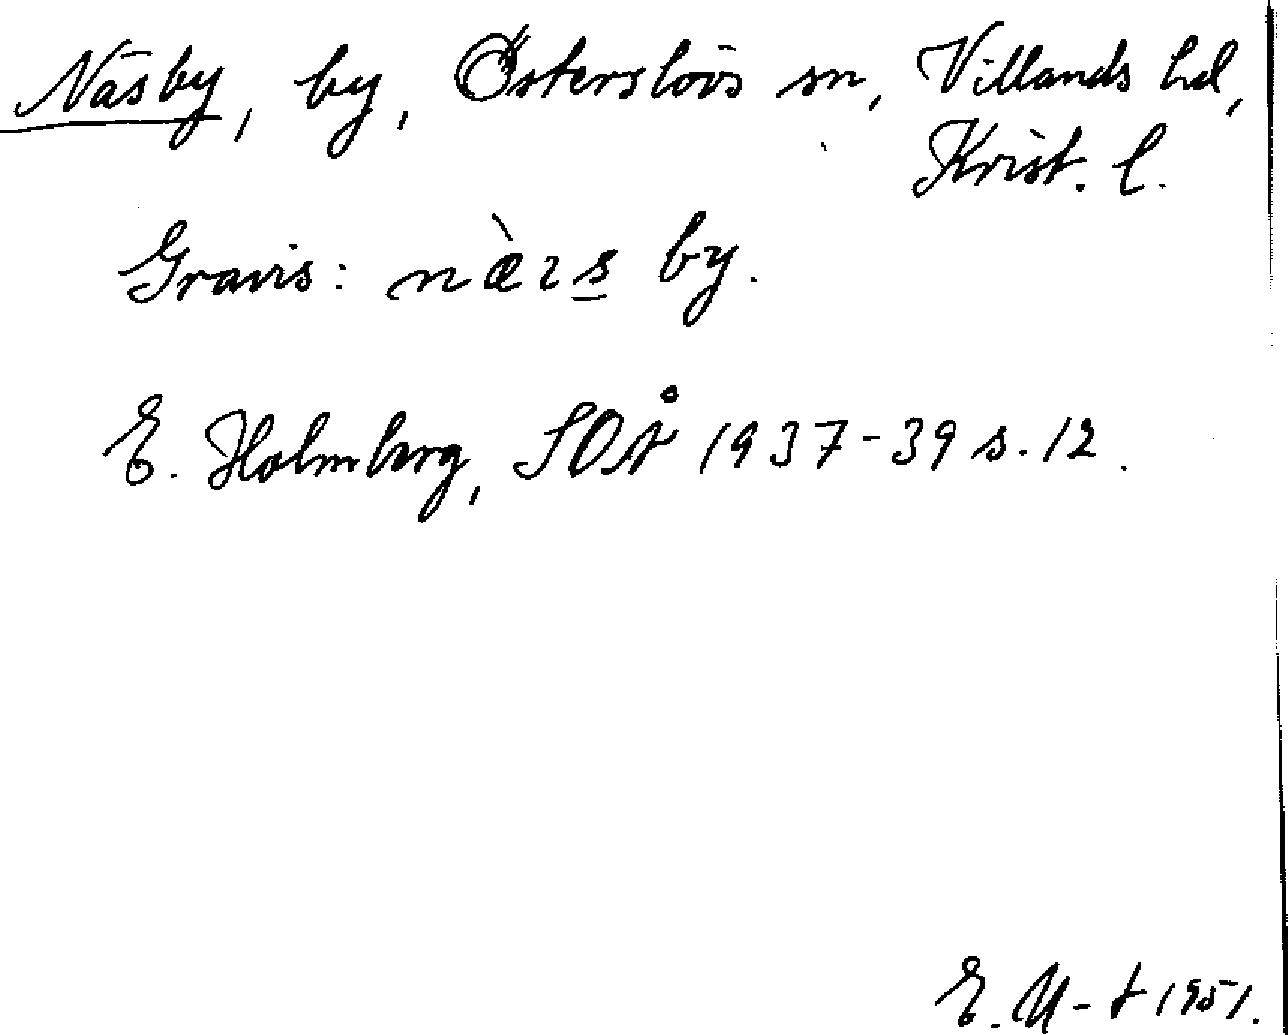 Näsby, by, Österslövs sn, Villands hd,
Krist. l.
Gravis: næ̀ıs by.
E. Holmberg, SOÅ 1937-39 s. 12.
E. U-t 1951.